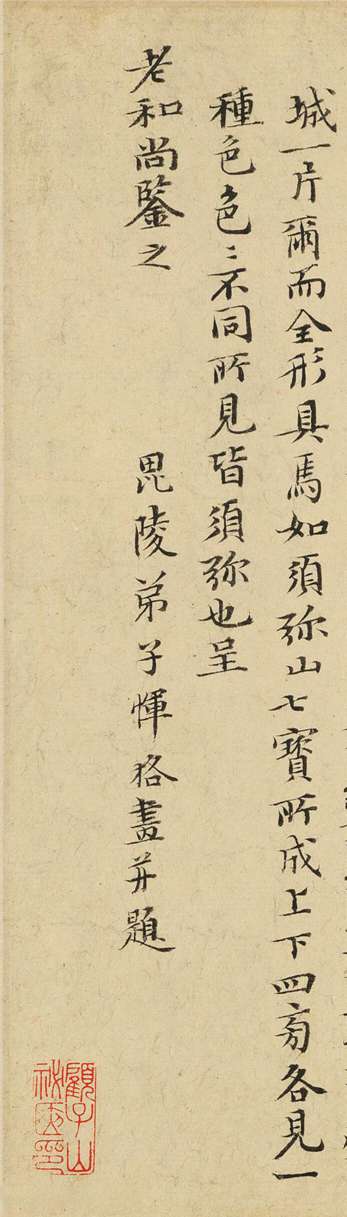 城一片爾而全形具焉如須弥山七寶所成上下四旁各見一
種色色〻不同所見皆須弥也呈
老和尚鑒之
毘陵弟子惲格畫并題
顧子山
秘篋印